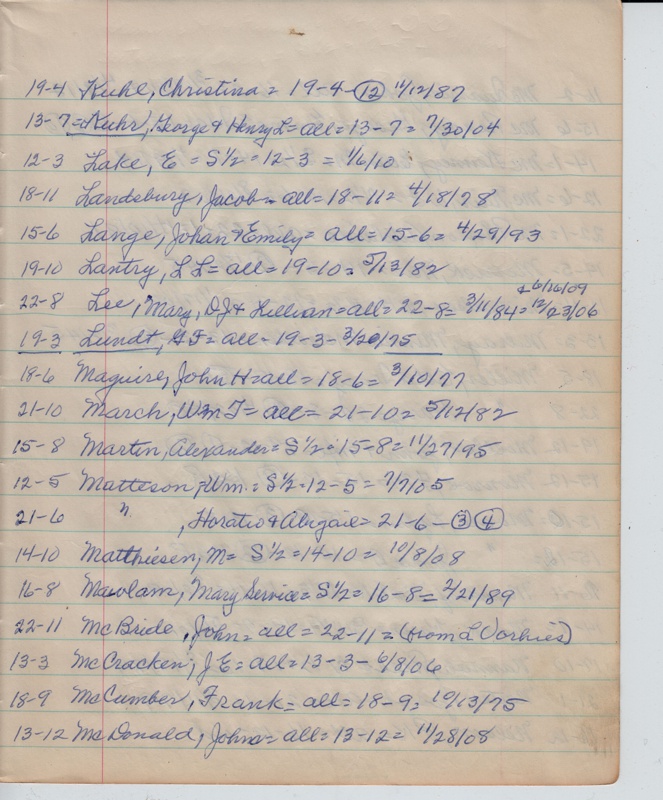 19-4 Kuhl, Christina = 19-4-12 11/12/87
13-7 = Kuhr, George & Henry L = all = 13-7 = 7/30/04
12-3 Lake, E = S 1/2 = 12-3 = 1/6/10
18-11 Landsbury, Jacob = all = 18-11 = 4/18/78
15-6 Lange, Johan & Emily = all = 15-6 = 4/29/93
19-10 Lantry, L L = all = 19-10 = 5/13/82
& 6/26/09
22-8 Lee, Mary, D J & Lillian = all = 22-8 = 3/11/84 = 12/23/06
19-3 Lundt, G F = all - 19-3 - 3/20/75
18-6 Maguire, John H = all = 18-6 = 3/10/77
21-10 March, Wm T = all = 21-10 = 5/12/82
15-8 Martin, Alexander = S 1/2 = 15-8 = 11/27/95
12-5 Matteson, Wm. = S 1/2 = 12-5 = 7/7/05
21-6 " , Horatio & Abigail = 21-6 - 3 4
14-10 Matthiesen, M = S 1/2 = 14-10 = 10/8/08
16-8 , Mary Service = S 1/2 = 16-8 = 2/21/89
22-11 McBride, John = all = 22-11 = (from L Vorhies)
13-3 McCracken, J E = all = 13-3 - 6/8/06
18-9 McCumber, Frank = all = 18-9 = 10/13/75
13-12 McDonald, John = all = 13-12 = 11/28/08